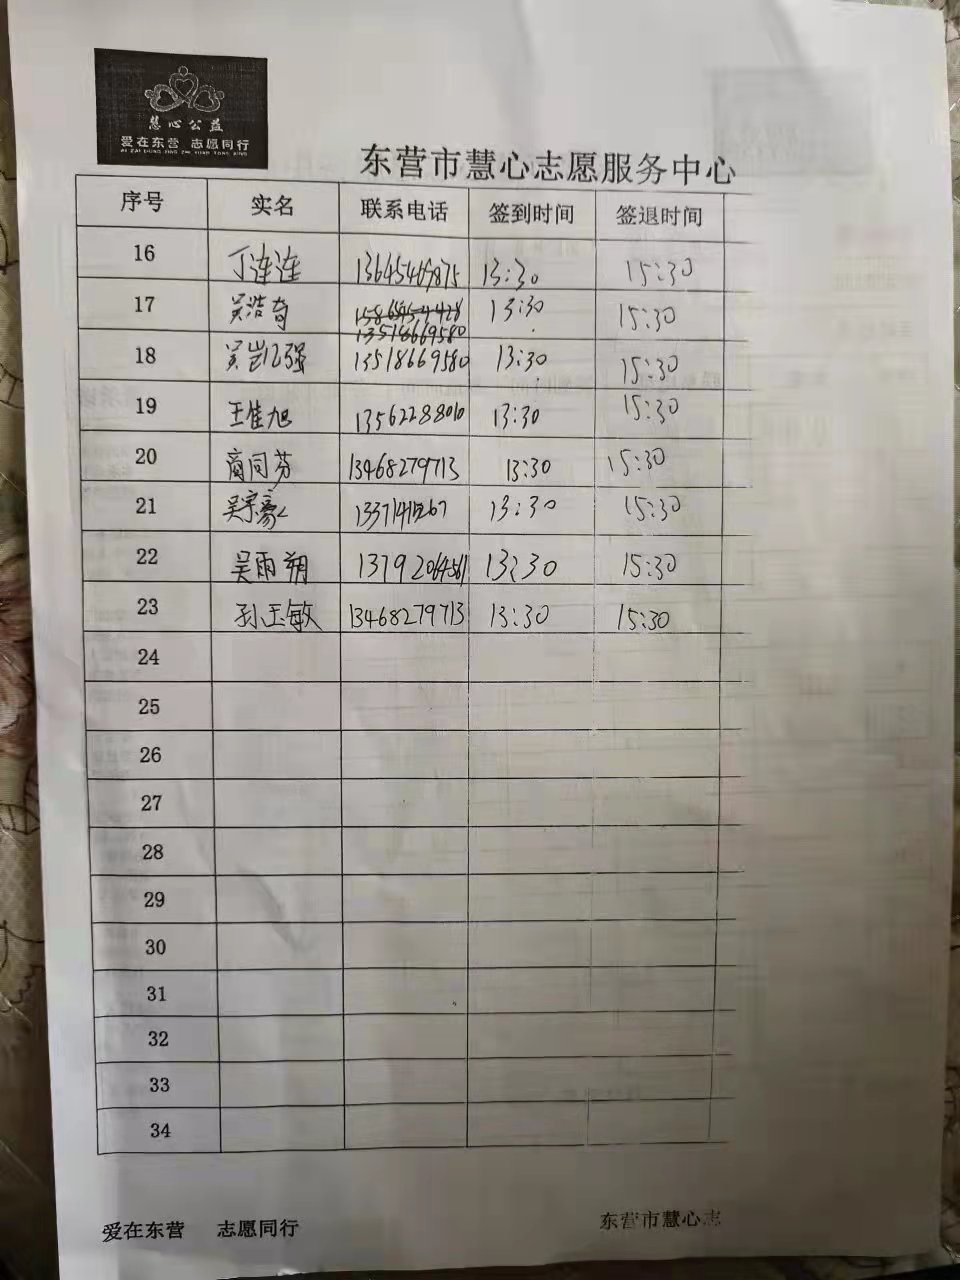 慧心公益
爱在东营 志愿同行
AI ZAI DONG YING ZHI YUAN TONG XING
东营市慧心志愿服务中心
序号 实名 联系电话 签到时间 签退时间
16 丁连连 13645469875 13:30 15:30
17 吴浩奇 13518669580 13:30 15:30
18 吴岂强 13518669580 13:30 15:30
19 王佳旭 13562288010 13:30 15:30
20 商同芬 13468279713 13:30 15:30
21 吴宗豪 13:30 15:30
22 吴雨朔 13792064561 13:30 15:30
23 孙玉敏 13468279713 13:30 15:30
24
25
26
27
28
29
30
31
32
33
34
爱在东营 志愿同行 东营市慧心志